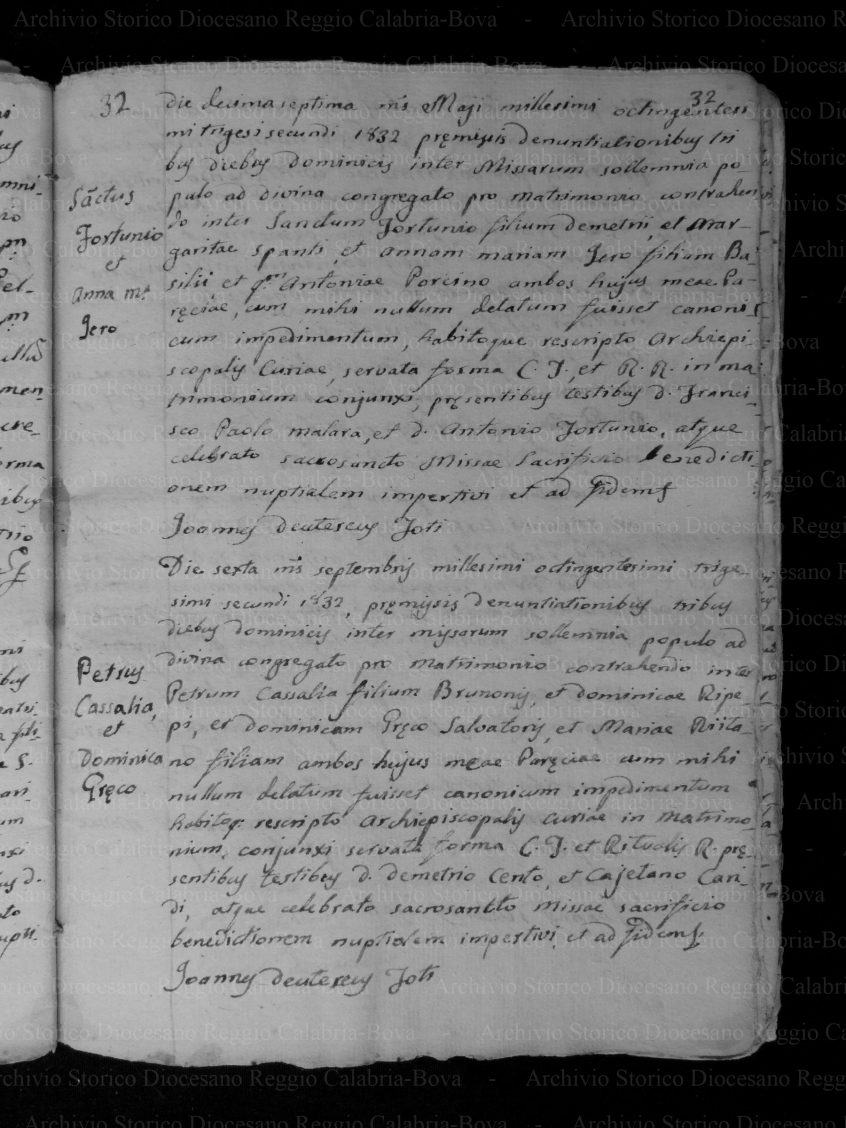 32
32
Die decima septima m̄s Maji millesimi octingentesi
mi trigesi secundi 1832 pręmissis denuntiationibus tri
bus diebus dominicis inter Missarum sollemnia po-
pulo ad divina congregato pro matrimonio contrahen
do inter Sanctum Fortunio filium demetrii, et Mar-
garitae Spanti, et annam mariam Jero filiam Ba-
silii et qm Antoniae Porcino ambos hujus meae Pa-
ręciae, cum mihi nullum delatum fuisset canoni
cum impedimentum, habitoque rescripto Archiepi
scopalis Curiae, servata forma C. T., et R. R. in ma
trimonium conjunxi, pręsentibus testibus d. Franci-
sco Paolo malara, et d. Antonio Fortunio, atque
celebrato sacrosancto Missae Sacrificio benedicti
onem nuptialem impertivi et ad fidem
Joannes deutereus Foti
Sāctus
Fortunio
et
Anna mª
Jero
Die sexta m̄s septembris millesimi octingentesimi trige
simi secundi 1832, pręmissis denuntiationibus tribus
diebus dominicis inter missarum sollemnia populo ad
divina congregato pro matrimonio contrahendo inter
Petrum Cassalia filium Brunonis, et dominicae Ripe-
pi, et dominicam Gręco Salvatoris, et Mariae Riita
no filiam ambos hujus meae Paręciae cum mihi
nullum delatum fuisset canonicum impedimentum
habitoq: rescripto Archiepiscopalis curiae in Matrimo
nium, conjunxi servata forma C. T. et Ritualis R. prę
sentibus testibus d. demetrio Cento, et Cajetano Cari-
di, atque celebrato sacrosancto Missae sacrificio
benedictionem nuptialem impertivi, et ad fidem
Joannes deutereus Foti
Petrus
Cassalia,
et
Dominica
Gręco
Archivio Storico Diocesano Reggio Calabria-Bova